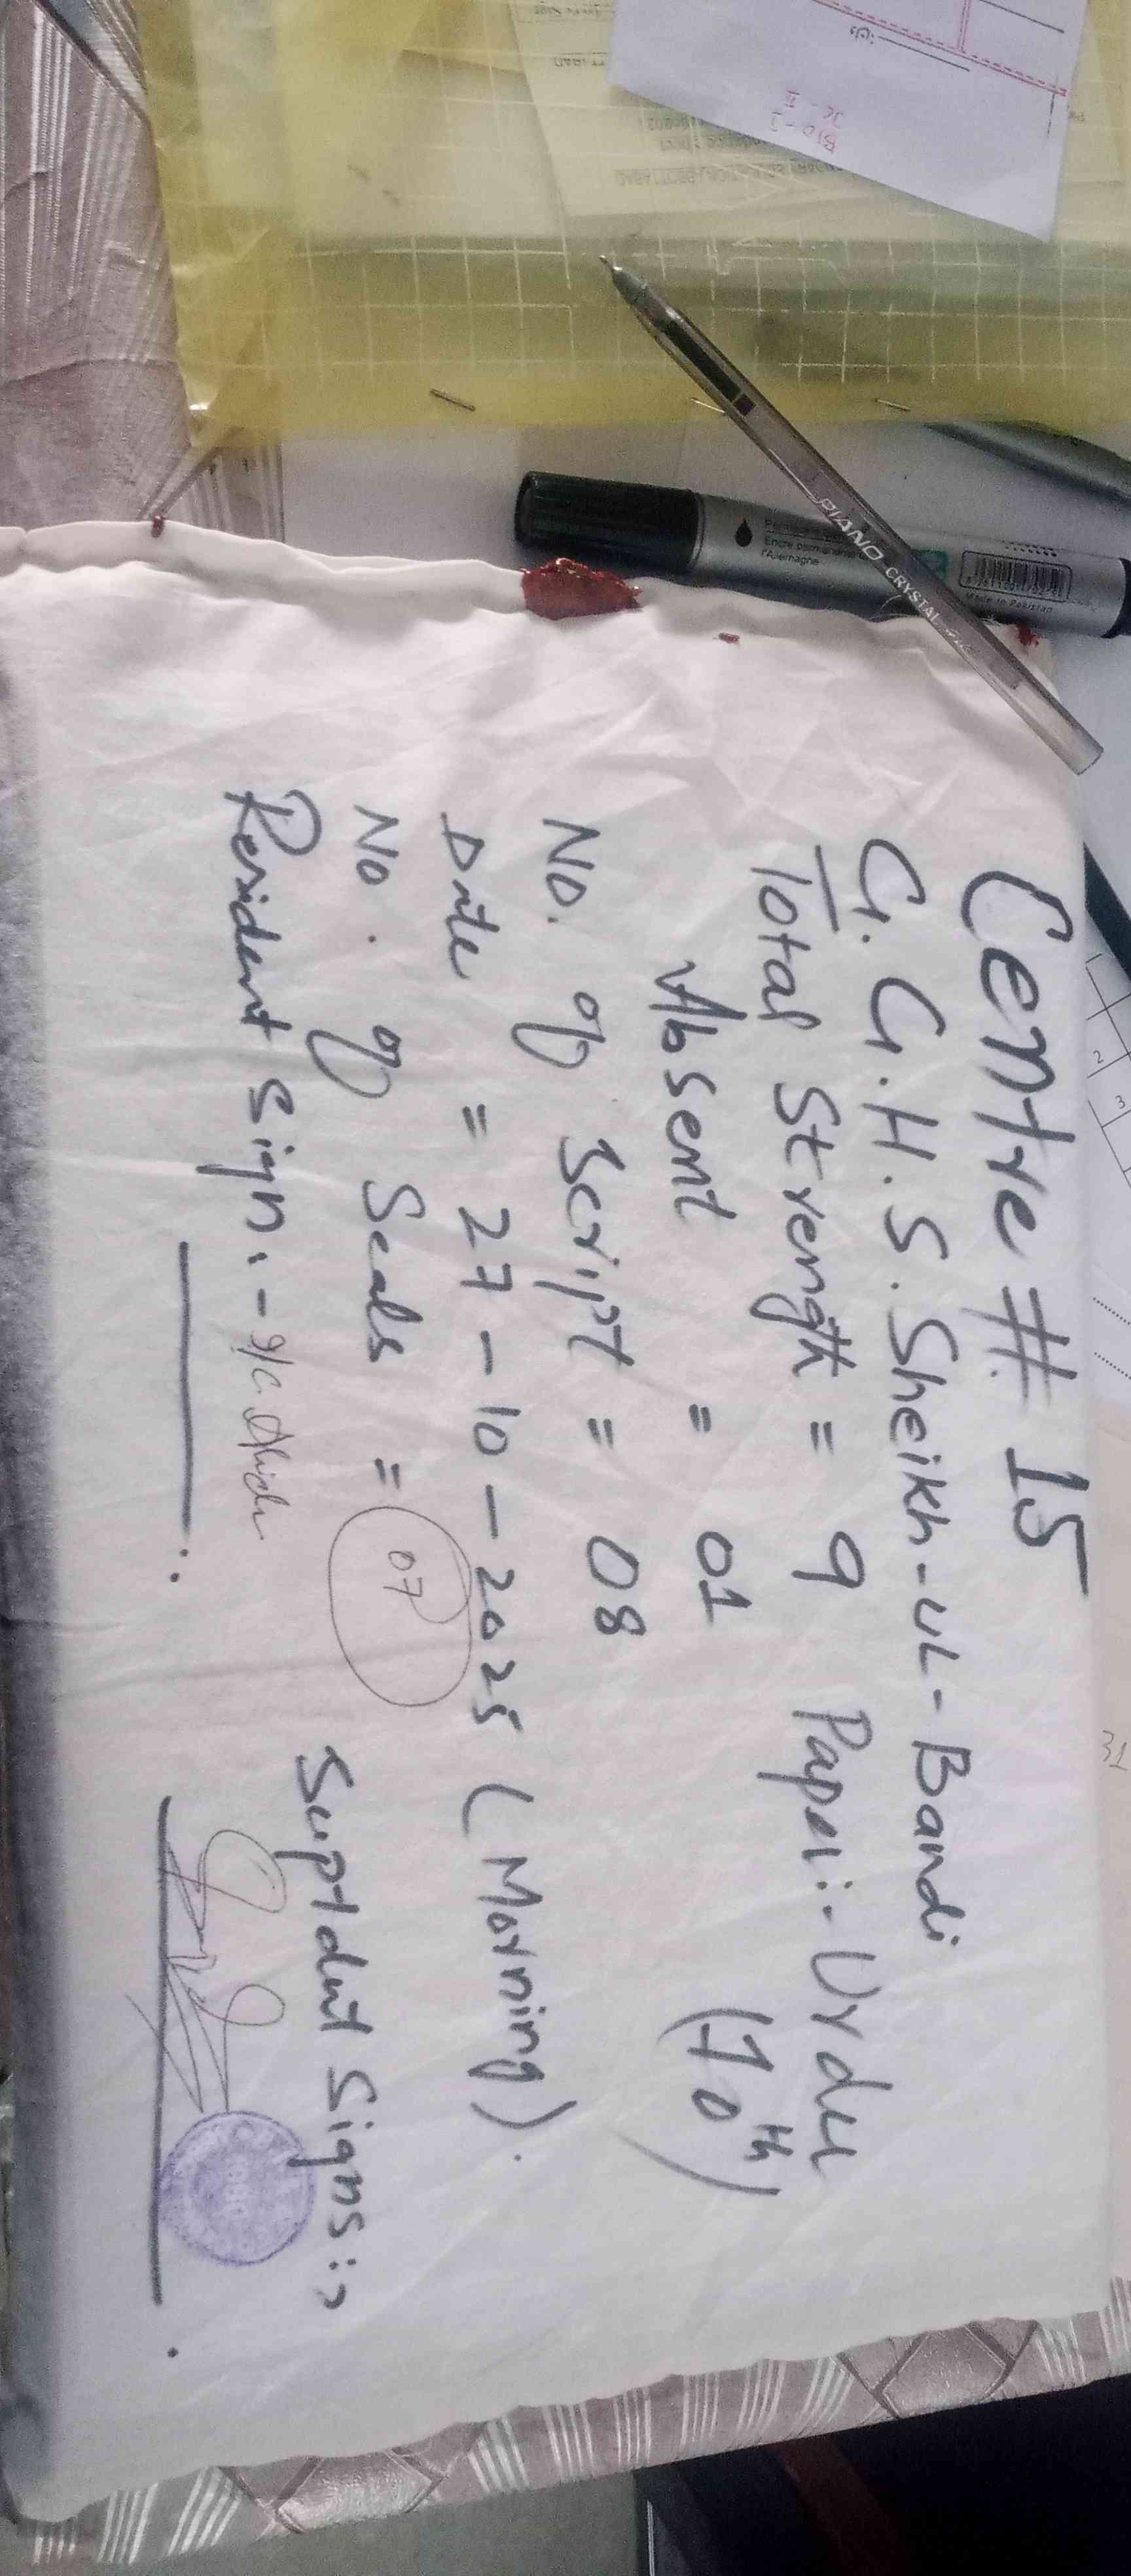 Centre # 15
G.G.H.S. Sheikh-UL-Bandi
Total Strength = 9 Paper:- Urdu
Absent = 01 (10th)
No. of Script = 08
Date = 27-10-2025 (Morning).
No. of Seals = 07
Suptdent Signs:>
Resident Sign:-
PIANO CRYSTAL
Encre permanente
l'Allemagne
Made in Pakistan
BIO-I
2
3
31